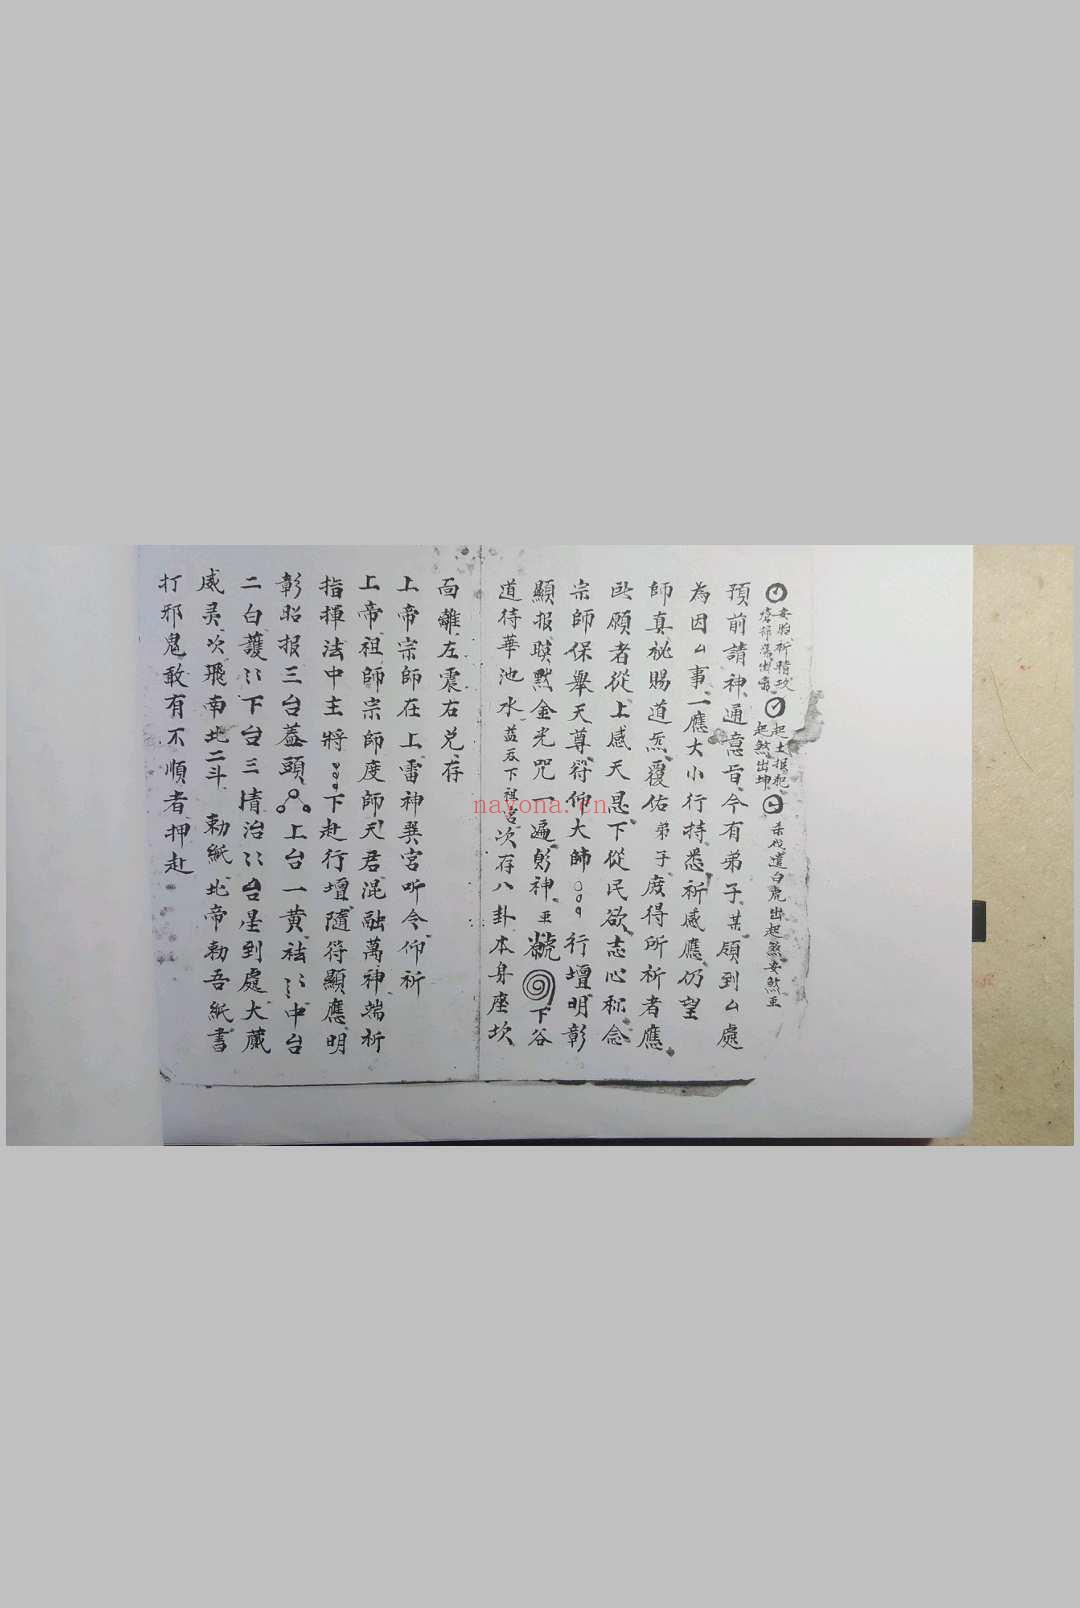 安胎祈晴政
起土报犯
起煞出坤
遣白虎出起煞安煞
預前請神通意旨今有弟子某領到厶處
為因厶事一應大小行持悉祈感應仍望
師真祕賜道炁覆佑弟子庻得所祈者應
所願者從上感天恩下從民欲志心称念
宗師保舉天尊符仰大師行壇明彰
顯报默金光咒一遍神下谷
道待華池水下次存八卦本身座坎
面離左震右兑存
上帝宗師在上雷神巽宮听令仰祈
上帝祖師宗師度師天君混融萬神端祈
指揮法中主將下赴行壇隨符顯應明
彰昭报三台蓋頭上台一黄祛〻中台
二白護〻下台三清治〻台星到處大藏
威灵次飛南北二斗勅紙北帝勅吾紙書
打邪鬼敢有不順者押赴
nayona.cn